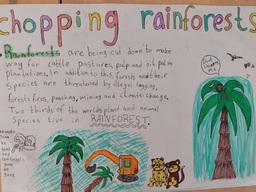 chopping rainforests
• Rainforests are being cut down to make
way for cattle pastures, pulp and oil palm
plantations, In addition to this forests and their
species are threatened by illegal logging,
forests fires, poaching, mining and climate change,
Two thirds of the worlds plant and animal
Species live in RAINFOREST.